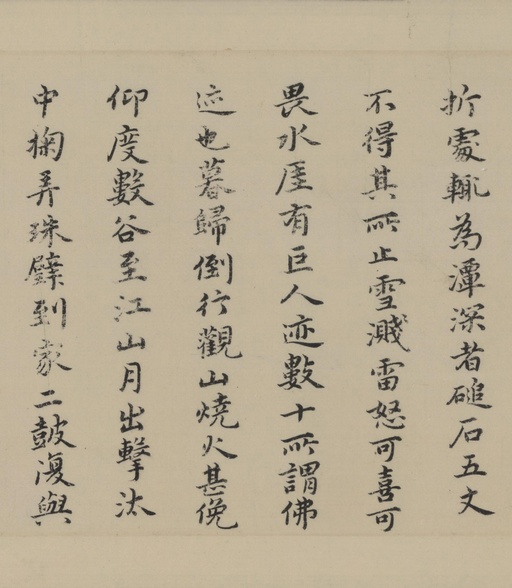 折處輒為潭深者磓石五丈
不得其所止雪濺雷怒可喜可
畏水厓有巨人迹數十所謂佛
迹也暮歸倒行觀山燒火甚俛
仰度數谷至江山月出擊汰
中掬弄珠璧到家二鼓復與